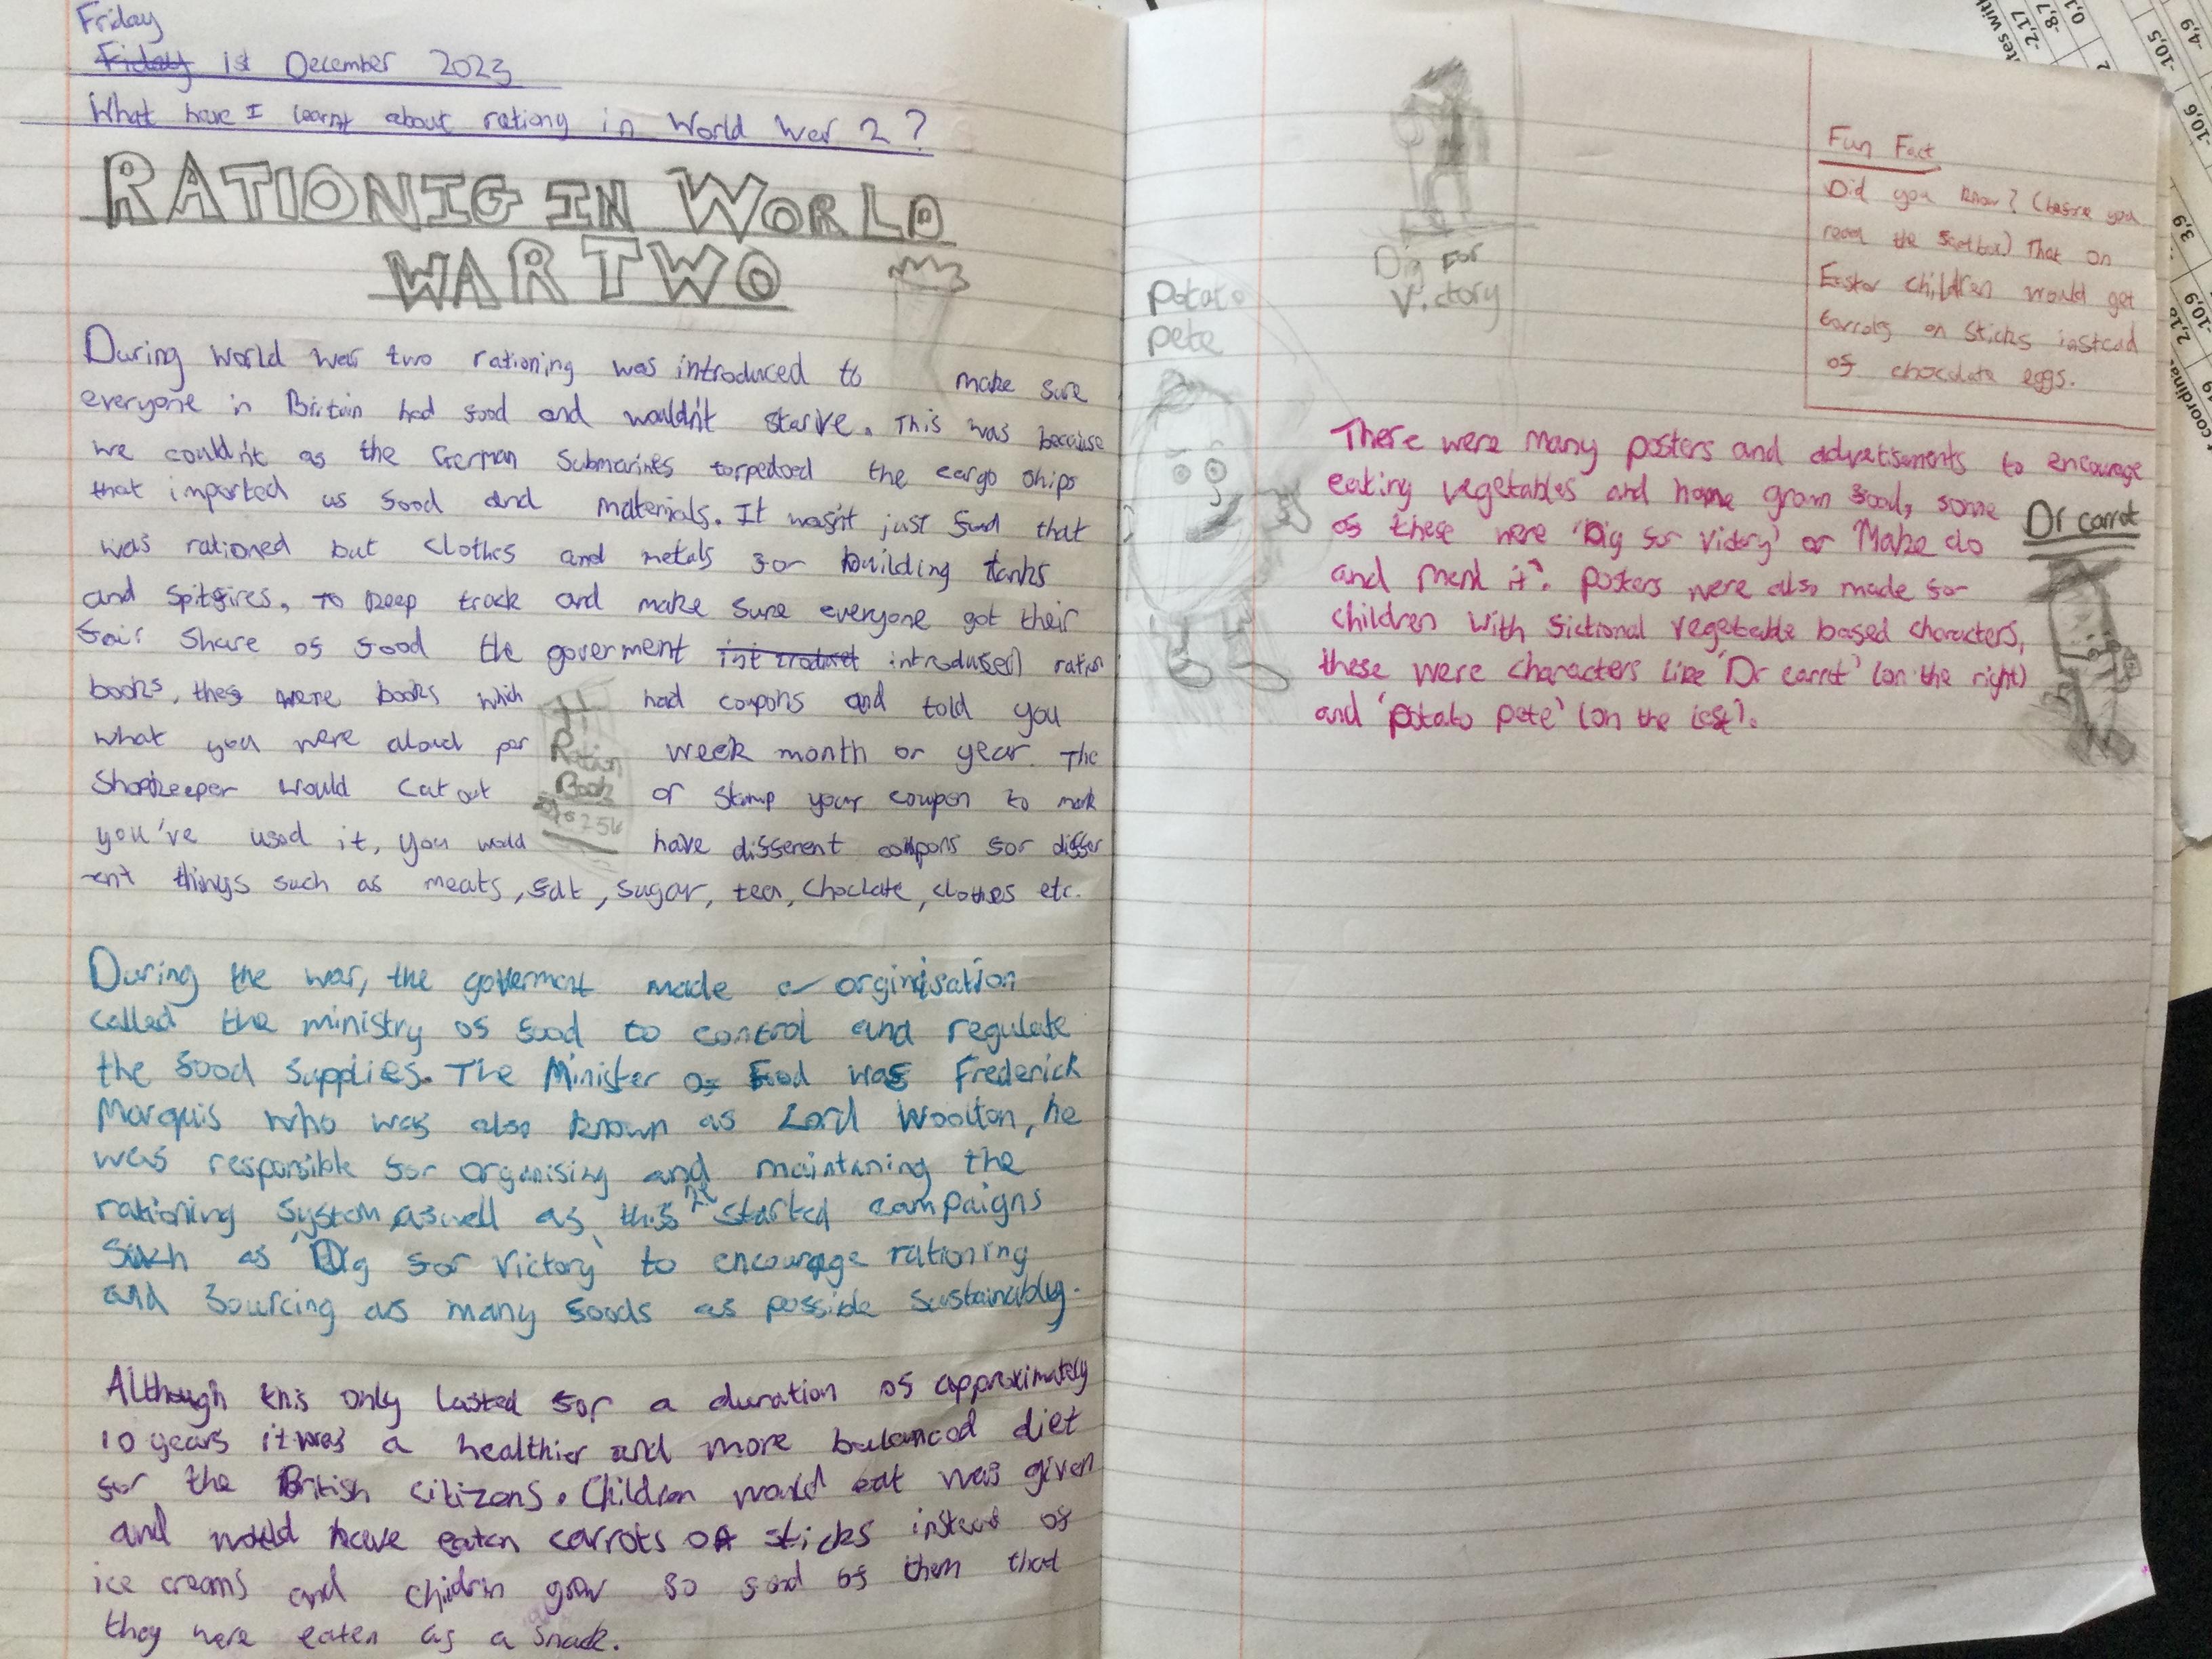 Friday
Friday 1st December 2023
What have I learnt about rationg in World War 2?
RATIONIG IN WORLD
WAR TWO
During world war two rationing was introduced to make sure
everyone in Britain had food and wouldn't starve. This was because
we couldn't as the German submarines torpedoed the cargo ships
that imported us food and materials. It wasn't just food that
was rationed but clothes and metals for building tanks
and spitfires. To keep track and make sure everyone got their
fair share of food the goverment introdused ration
books, these were books which had coupons and told you
what you were aloud per week month or year. The
Shopkeeper would cut out or stamp your coupon to mark
you've used it, you would have different coupons for differ
-ent things such as meats, salt, sugar, tea, choclate, clothes etc.
Ration
Book
During the war, the goverment made a orginisation
called the ministry of food to control and regulate
the food supplies. The Minister of Food was Frederick
Marquis who was also known as Lord Woolton, he
was responsible for organising and maintaning the
rationing system, aswell as this he started campaigns
such as 'Dig for Victory' to encourage rationing
and sourcing as many foods as possible sustainably.
Although this only lasted for a duration of approximately
10 years it was a healthier and more balanced diet
for the British citizens. Children would eat was given
and would have eaten carrots on sticks instead of
ice creams and chidrin grow so fond of them that
they were eaten as a snack.
Dig For
Victory
Potato
Pete
Fun Fact
Did you know? (before you
read the ) That on
Easter children would get
carrots on sticks instead
of chocolate eggs.
There were many posters and advertisements to encourage
eating vegetables and home grown food, some
of these were 'Dig for Victory' or 'Make do
and mend it'. Posters were also made for
children with fictional vegetable based characters,
these were characters like 'Dr carrot' (on the right)
and 'potato pete' (on the left).
Dr carrot
-2,17
-8,7
0,1
-4,9
-10,5
-10,6
3,9
-10,9